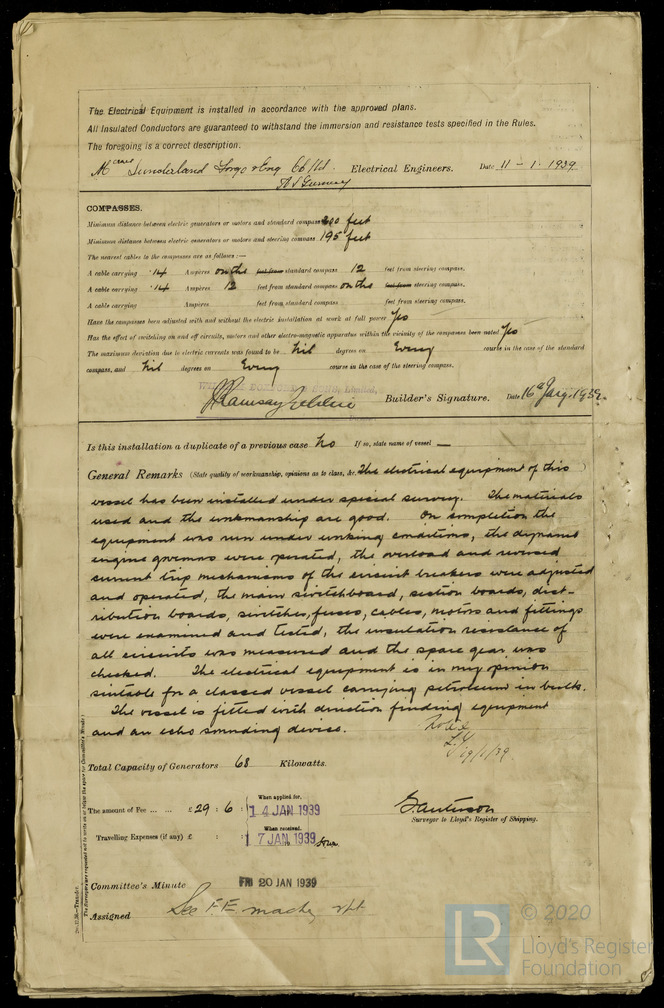 The Electrical Equipment is installed in accordance with the approved plans.
All Insulated Conductors are guaranteed to withstand the immersion and resistance tests specified in the Rules.
The foregoing is a correct description.
Sunderland Forge & Eng Co Ltd Electrical Engineers. Date 11 - 1 - 1939
COMPASSES.
Minimum distance between electric generators or motors and standard compass 200 feet
Minimum distance between electric generators or motors and steering compass 195 feet
The nearest cables to the compasses are as follows :—
A cable carrying .14 Ampères on the feet from standard compass 12 feet from steering compass.
A cable carrying .14 Ampères 12 feet from standard compass on the feet from steering compass.
A cable carrying Ampères feet from standard compass feet from steering compass.
Have the compasses been adjusted with and without the electric installation at work at full power Yes
Has the effect of switching on and off circuits, motors and other electro-magnetic apparatus within the vicinity of the compasses been noted Yes
The maximum deviation due to electric currents was found to be Nil degrees on Every course in the case of the standard
compass, and Nil degrees on Every course in the case of the steering compass.
Builder's Signature. Date 16th Jany. 1939.
Is this installation a duplicate of a previous case No If so, state name of vessel —
General Remarks (State quality of workmanship, opinions as to class, &c. The electrical equipment of this )
vessel has been installed under special survey. The materials
used and the workmanship are good. On completion the
equipment was run under working conditions, the dynamo
engine governors were operated, the overload and reversed
current trip mechanisms of the circuit breakers were adjusted
and operated, the main switchboard, section boards, dist-
ribution boards, switches, fuses, cables, motors and fittings
were examined and tested, the insulation resistance of
all circuits was measured and the spare gear was
checked. The electrical equipment is in my opinion
suitable for a classed vessel carrying petroleum in bulk.
The vessel is fitted with direction finding equipment
and an echo sounding device.
Noted
19/1/39
Total Capacity of Generators 68 Kilowatts.
The amount of Fee ... ... £ 29 : 6 :
When applied for,
14 JAN 1939
When received,
Travelling Expenses (if any) £ : : 17 JAN 1939
Surveyor to Lloyd's Register of Shipping.
Committee's Minute FRI 20 JAN 1939
Assigned See F.E. machy rpt
© 2020
LR
Lloyd's Register
Foundation